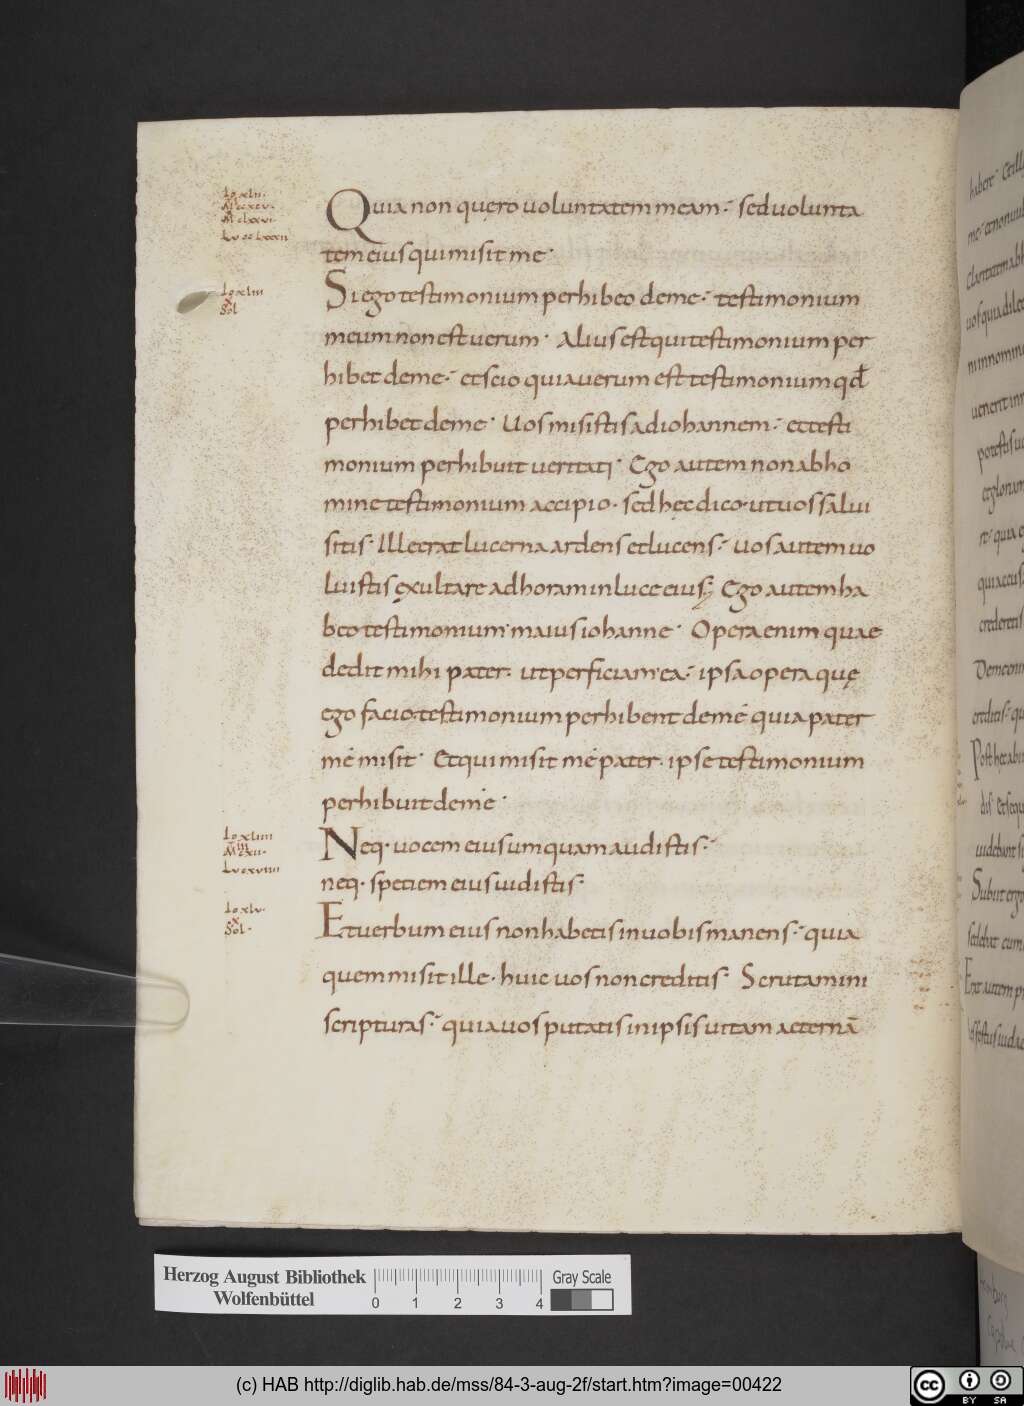 Io xlii·
M ccxcv·
M clxxvi·
Lu cclxxxii
Quia non quęro uoluntatem meam· sed uolunta
tem eius qui misit me·
Io xliii
x
Sol
Si ego testimonium perhibeo de me· testimonium
meum non est uerum· Alius est qui testimonium per
hibet de me· et scio quia uerum est testimonium qđ
perhibet de me· Uos misistis ad iohannem· et testi
monium perhibuit ueritati· Ego autem non ab ho
mine testimonium accipio· sed hęc dico· ut uos salui
sitis· Ille erat lucerna ardens et lucens· uos autem uo
luistis exultare ad horam in luce eius; Ego autem ha
beo testimonium maius iohanne· Opera enim quae
dedit mihi pater· ut perficiam ea· ipsa opera quę
ego facio· testimonium perhibent de me quia pater
me misit· Et qui misit me pater· ipse testimonium
perhibuit de me·
Io xliiii
iii
M cxii·
Lu cxviiii
Neq· uocem eius umquam audistis·
neq· speciem eius uidistis·
Io xlv·
x
Sol·
Et uerbum eius non habetis in uobis manens· quia
quem misit ille· huic uos non creditis· Scrutamini
scripturas· quia uos putatis in ipsis uitam aeternā
Herzog August Bibliothek
Wolfenbüttel
0 1 2 3 4
Gray Scale
(c) HAB http://diglib.hab.de/mss/84-3-aug-2f/start.htm?image=00422
cc BY SA